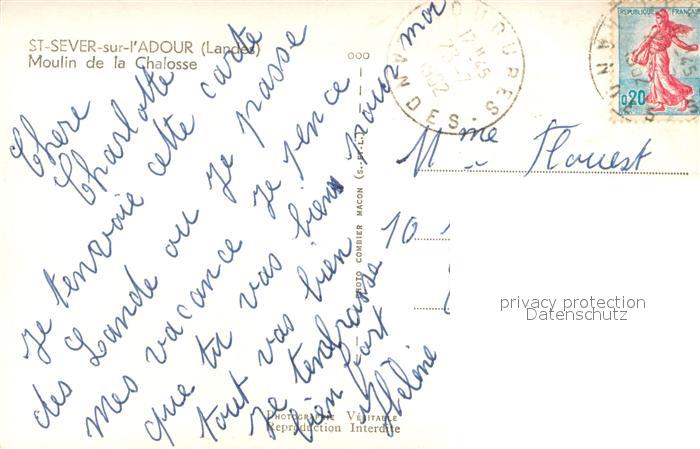 ST-SEVER-sur-l'ADOUR (Landes)
Moulin de la Chalosse
Chere
Charlotte
Je tenvoie cette carte
des Lande ou Je passe
mes vacance Je pence
que tu vas bien pour moi
tout vas bien
Je tenbrasse
bien fort
Hélène
PHOTO COMBIER MACON (S.-ET-L.)
PHOTOGRAPHIE VÉRITABLE
Reproduction Interdite
17H45
23-7
1962
LANDES
REPUBLIQUE FRANÇAISE
0,20
Mme Flouest
10
privacy protection
Datenschutz